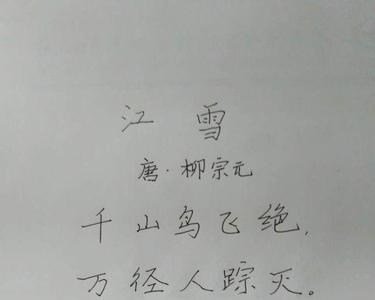 江 雪
唐·柳宗元
千山鸟飞绝,
万径人踪灭。